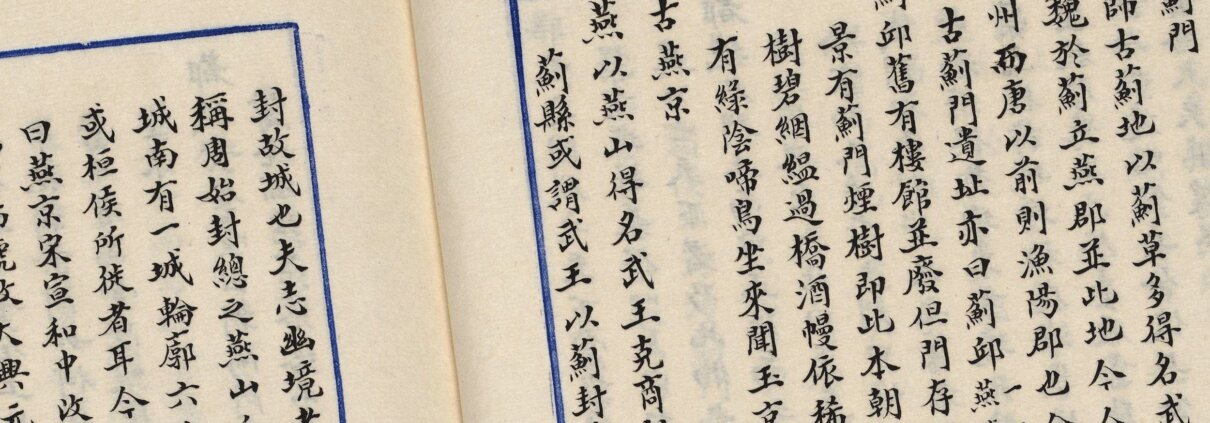 薊門
師古薊地以薊草多得名武
魏於薊立燕郡並此地今人
州而唐以前則漁陽郡也
古薊門遺址亦曰薊邱燕
邱舊有樓館並廢但門存
景有薊門煙樹即此本朝
樹碧綑緼過橋酒幔依稀
有綠陰啼鳥坐來聞玉京
古燕京
燕以燕山得名武王克商
薊縣或謂武王以薊封
封故城也夫志幽境
稱周始封總之燕山
城南有一城輪廓六
或桓侯所徙者耳今
曰燕京宋宣和中改
號改大興